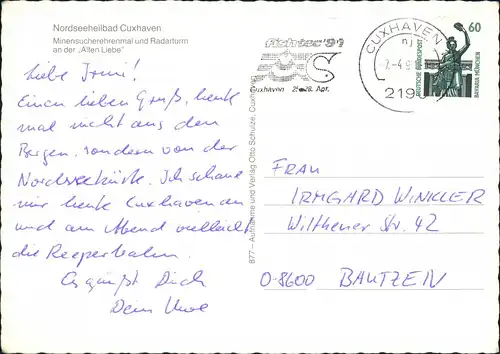 Nordseeheilbad Cuxhaven
Minensucherehrenmal und Radarturm
an der „Alten Liebe"
Liebe Irmi!
Einen lieben Gruß, heute
mal nicht aus den
Bergen, sondern von der
Nordseeküste. Ich schaue
mir heute Cuxhaven an
und am Abend vielleicht
die Reeperbahn.
Es grüßt Dich
Dein Uwe
877 – Aufnahme und Verlag Otto Schulze, Cuxhaven
fishtec '91
Cuxhaven 25.-28. Apr.
CUXHAVEN
2190
60
DEUTSCHE BUNDESPOST
BAVARIA MÜNCHEN
FRAU
IRMGARD WINKLER
Wilthener Str. 42
O-8600 BAUTZEN